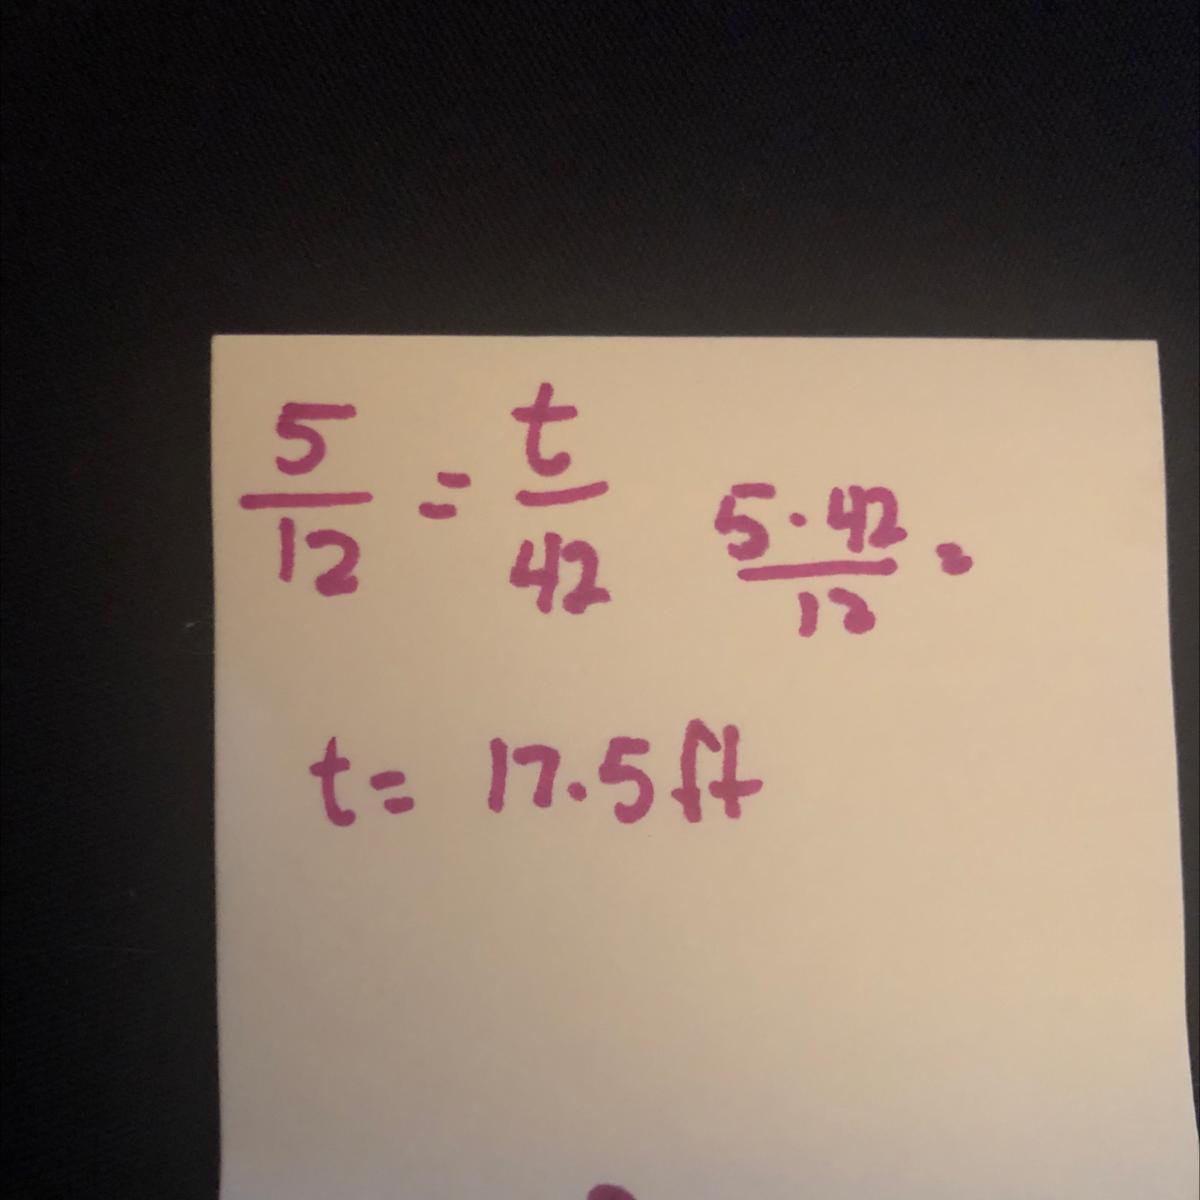 5/12 = t/42
5·42/12 =
t = 17.5 ft